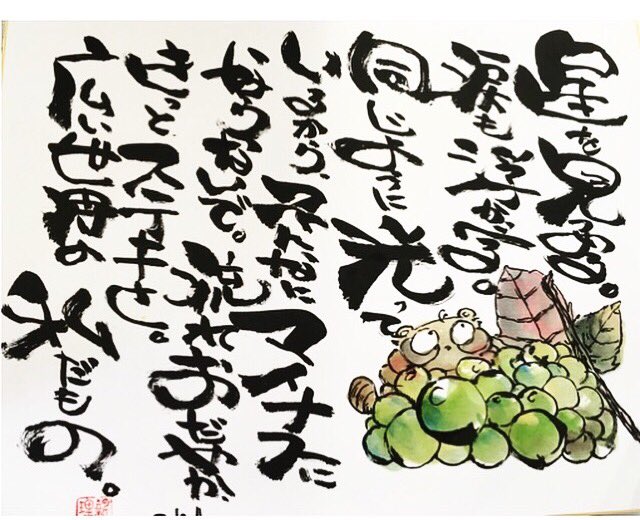 星を見る。
涙も浮かぶ。
同じように光って
いるから、そんなにマイナスに
ならないで。流れおだやか、
きっとステキと。
広い世界の
私だもの。